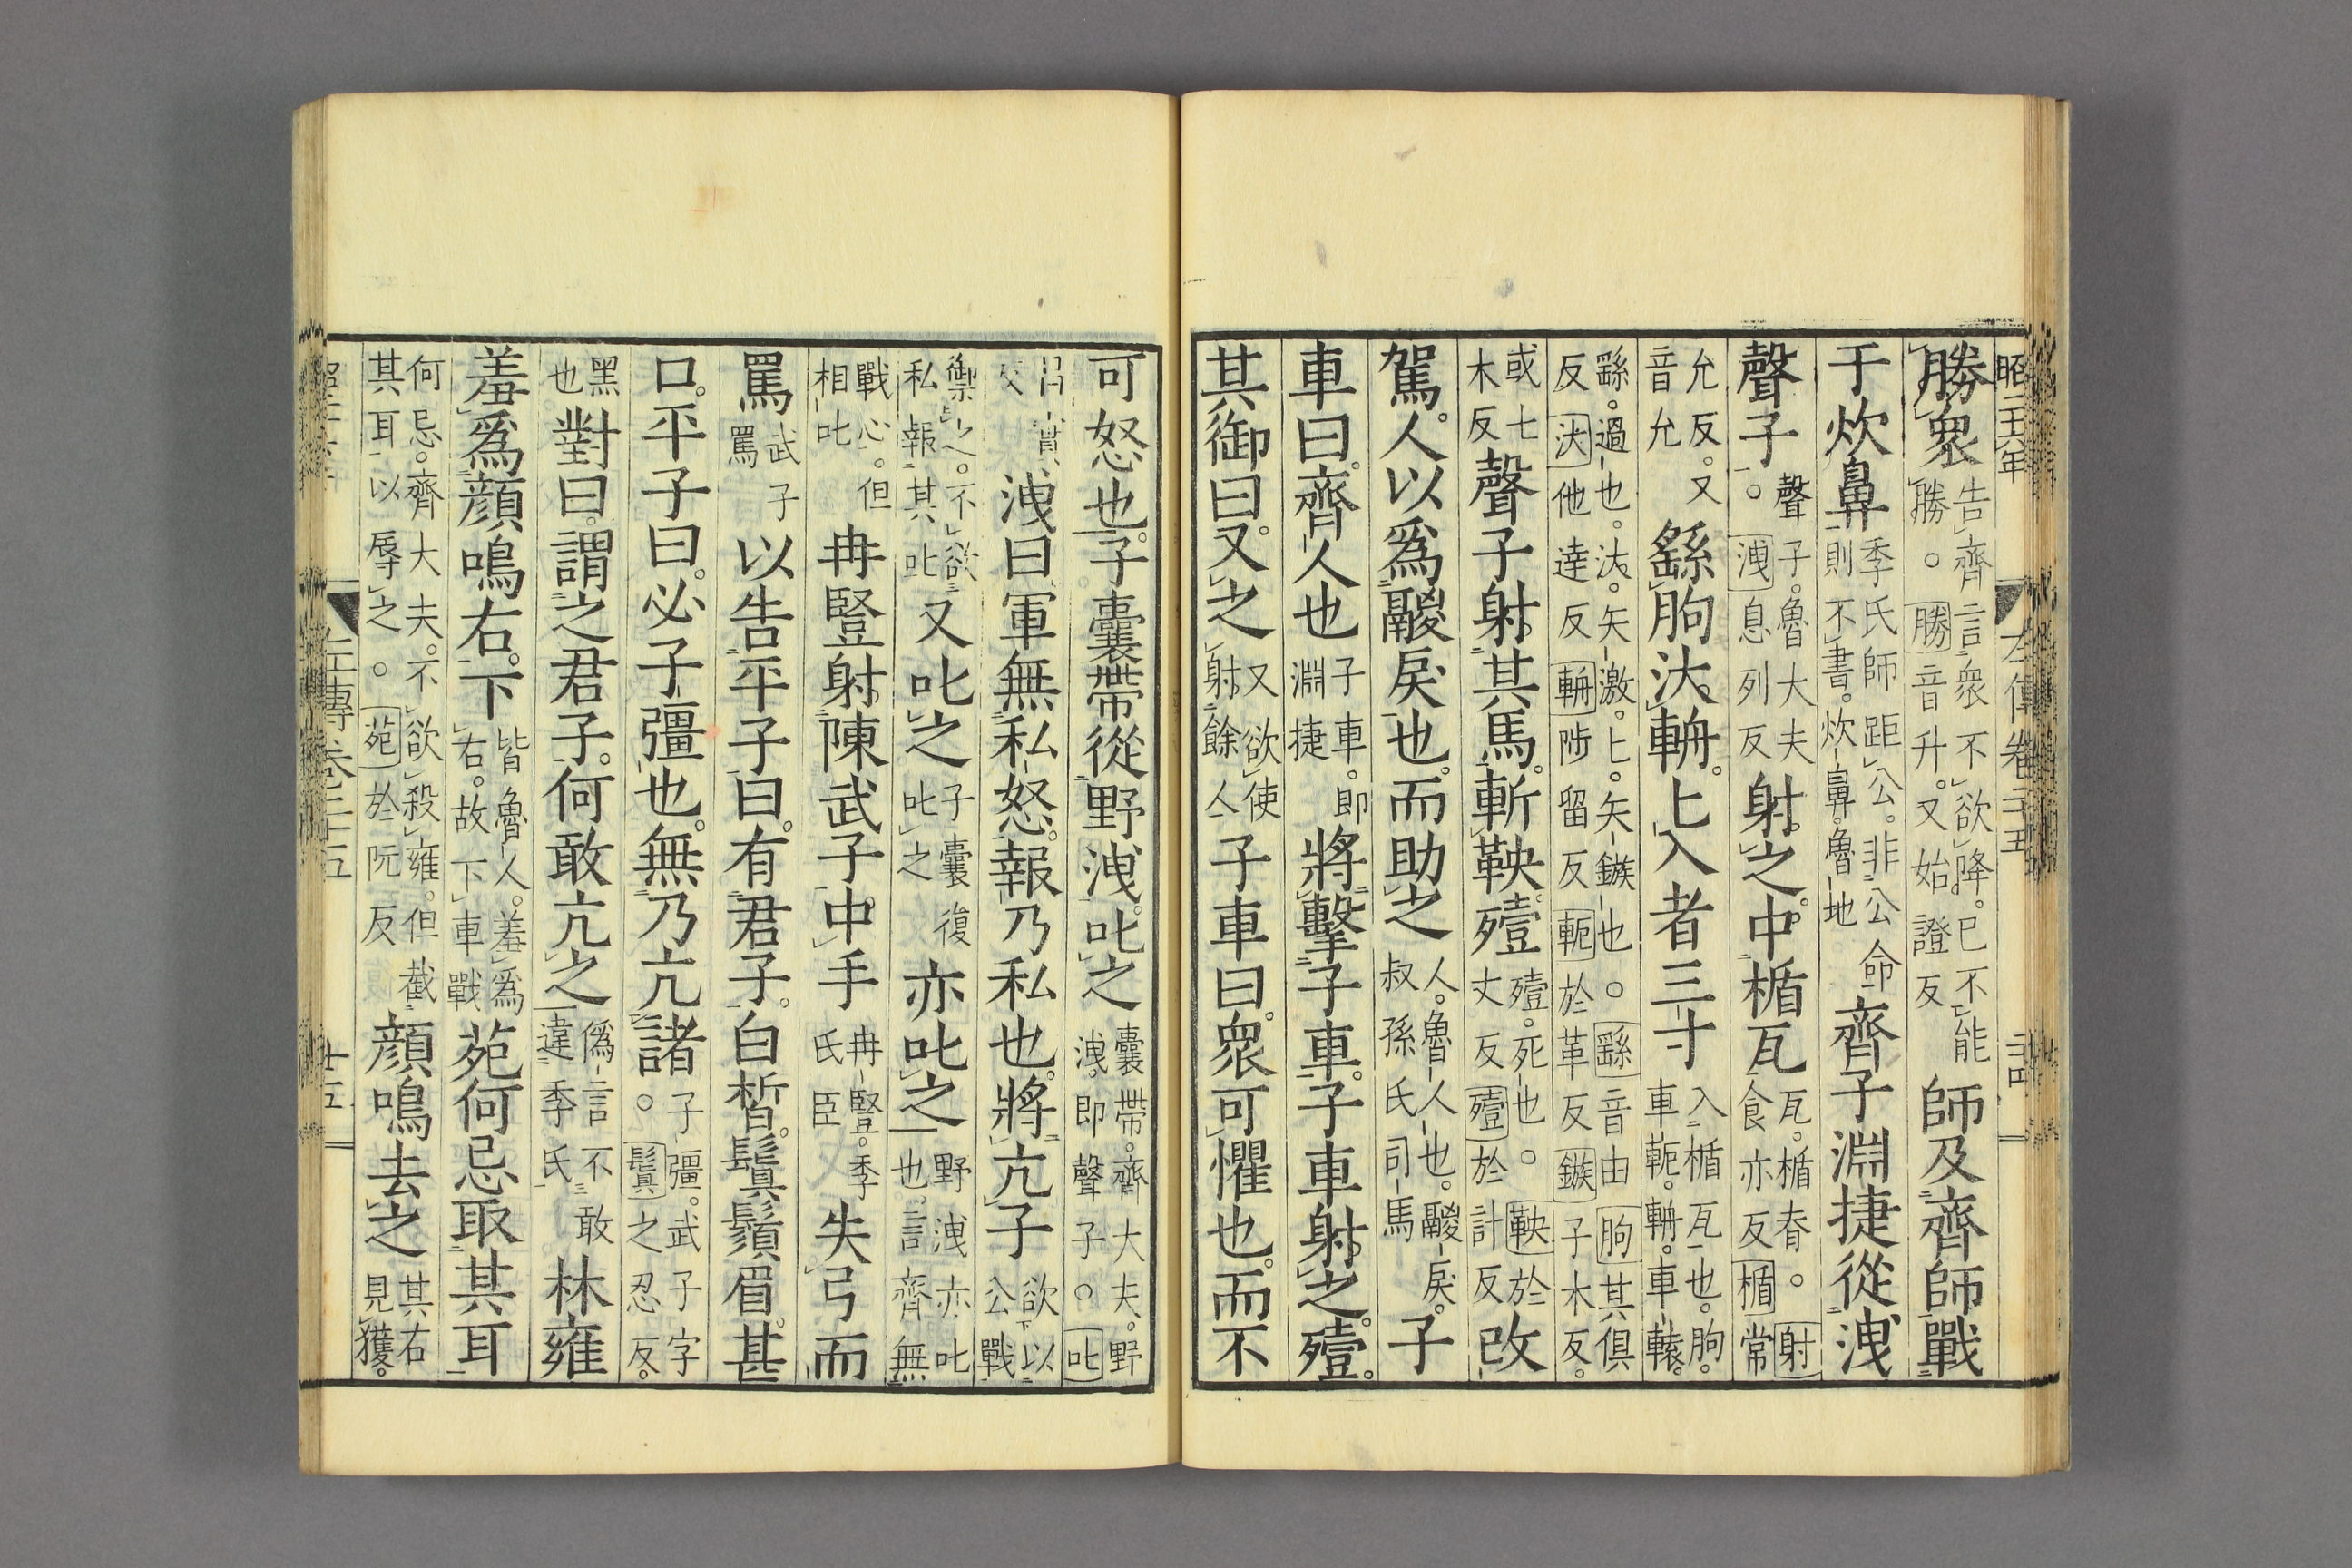 昭二十六年 左傳卷二十五
勝衆告齊言衆不欲降。已不能勝。勝音升。又始證反師及齊師戰
于炊鼻季氏師距公。非公命則不書。炊鼻。魯地齊子淵捷從洩
聲子聲子。魯大夫。洩息列反射之。中楯瓦瓦。楯脊。射食亦反楯常
允反。又音允繇朐汰輈。匕入者三寸入楯瓦也。朐。車軛。輈。車轅。
繇。過也。汰。矢激。匕。矢鏃也。繇音由朐其俱反汰他達反輈陟留反軛於革反鏃子木反。
或七木反聲子射其馬。斬鞅。殪殪。死也。鞅於丈反殪於計反改
駕。人以爲鬷戾也。而助之人。魯人也。鬷戾。叔孫氏司馬子
車曰。齊人也子車。即淵捷將擊子車。子車射之。殪。
其御曰。又之又欲使射餘人子車曰。衆可懼也。而不
可怒也。子囊帶從野洩。叱之囊帶。齊大夫。野洩。即聲子。叱
昌實反洩曰。軍無私怒。報乃私也。將亢子欲以公戰
禦之。不欲私報其叱又叱之子囊復叱之亦叱之野洩亦叱也。言齊無
戰心。但相叱冉豎射陳武子。中手冉豎。季氏臣失弓而
罵武子罵以告平子曰。有君子。白晳。鬒鬚眉。甚
口。平子曰。必子彊也。無乃亢諸子彊。武子字。鬒之忍反。
黑也對曰。謂之君子。何敢亢之僞言不敢違季氏林雍
羞爲顔鳴右。下皆魯人。羞爲右。故下車戰苑何忌取其耳
何忌。齊大夫。不欲殺雍。但截其耳以辱之。苑於阮反顔鳴去之其右見獲。
左傳卷二十五